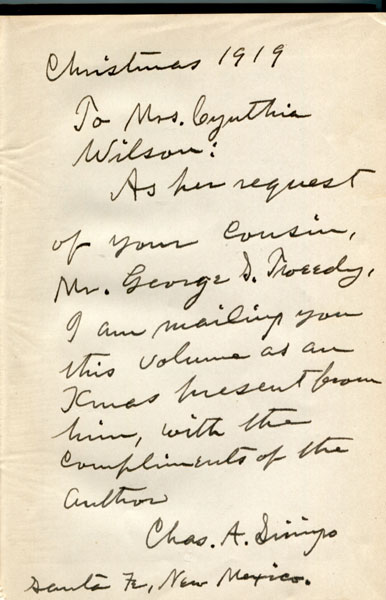 Christmas 1919
To Mrs. Cynthia
Wilson:
As per request
of your Cousin,
Mr. George D. Tweedy,
I am mailing you
this volume as an
Xmas present from
him, with the
compliments of the
author
Chas. A. Siringo
Santa Fe, New Mexico.